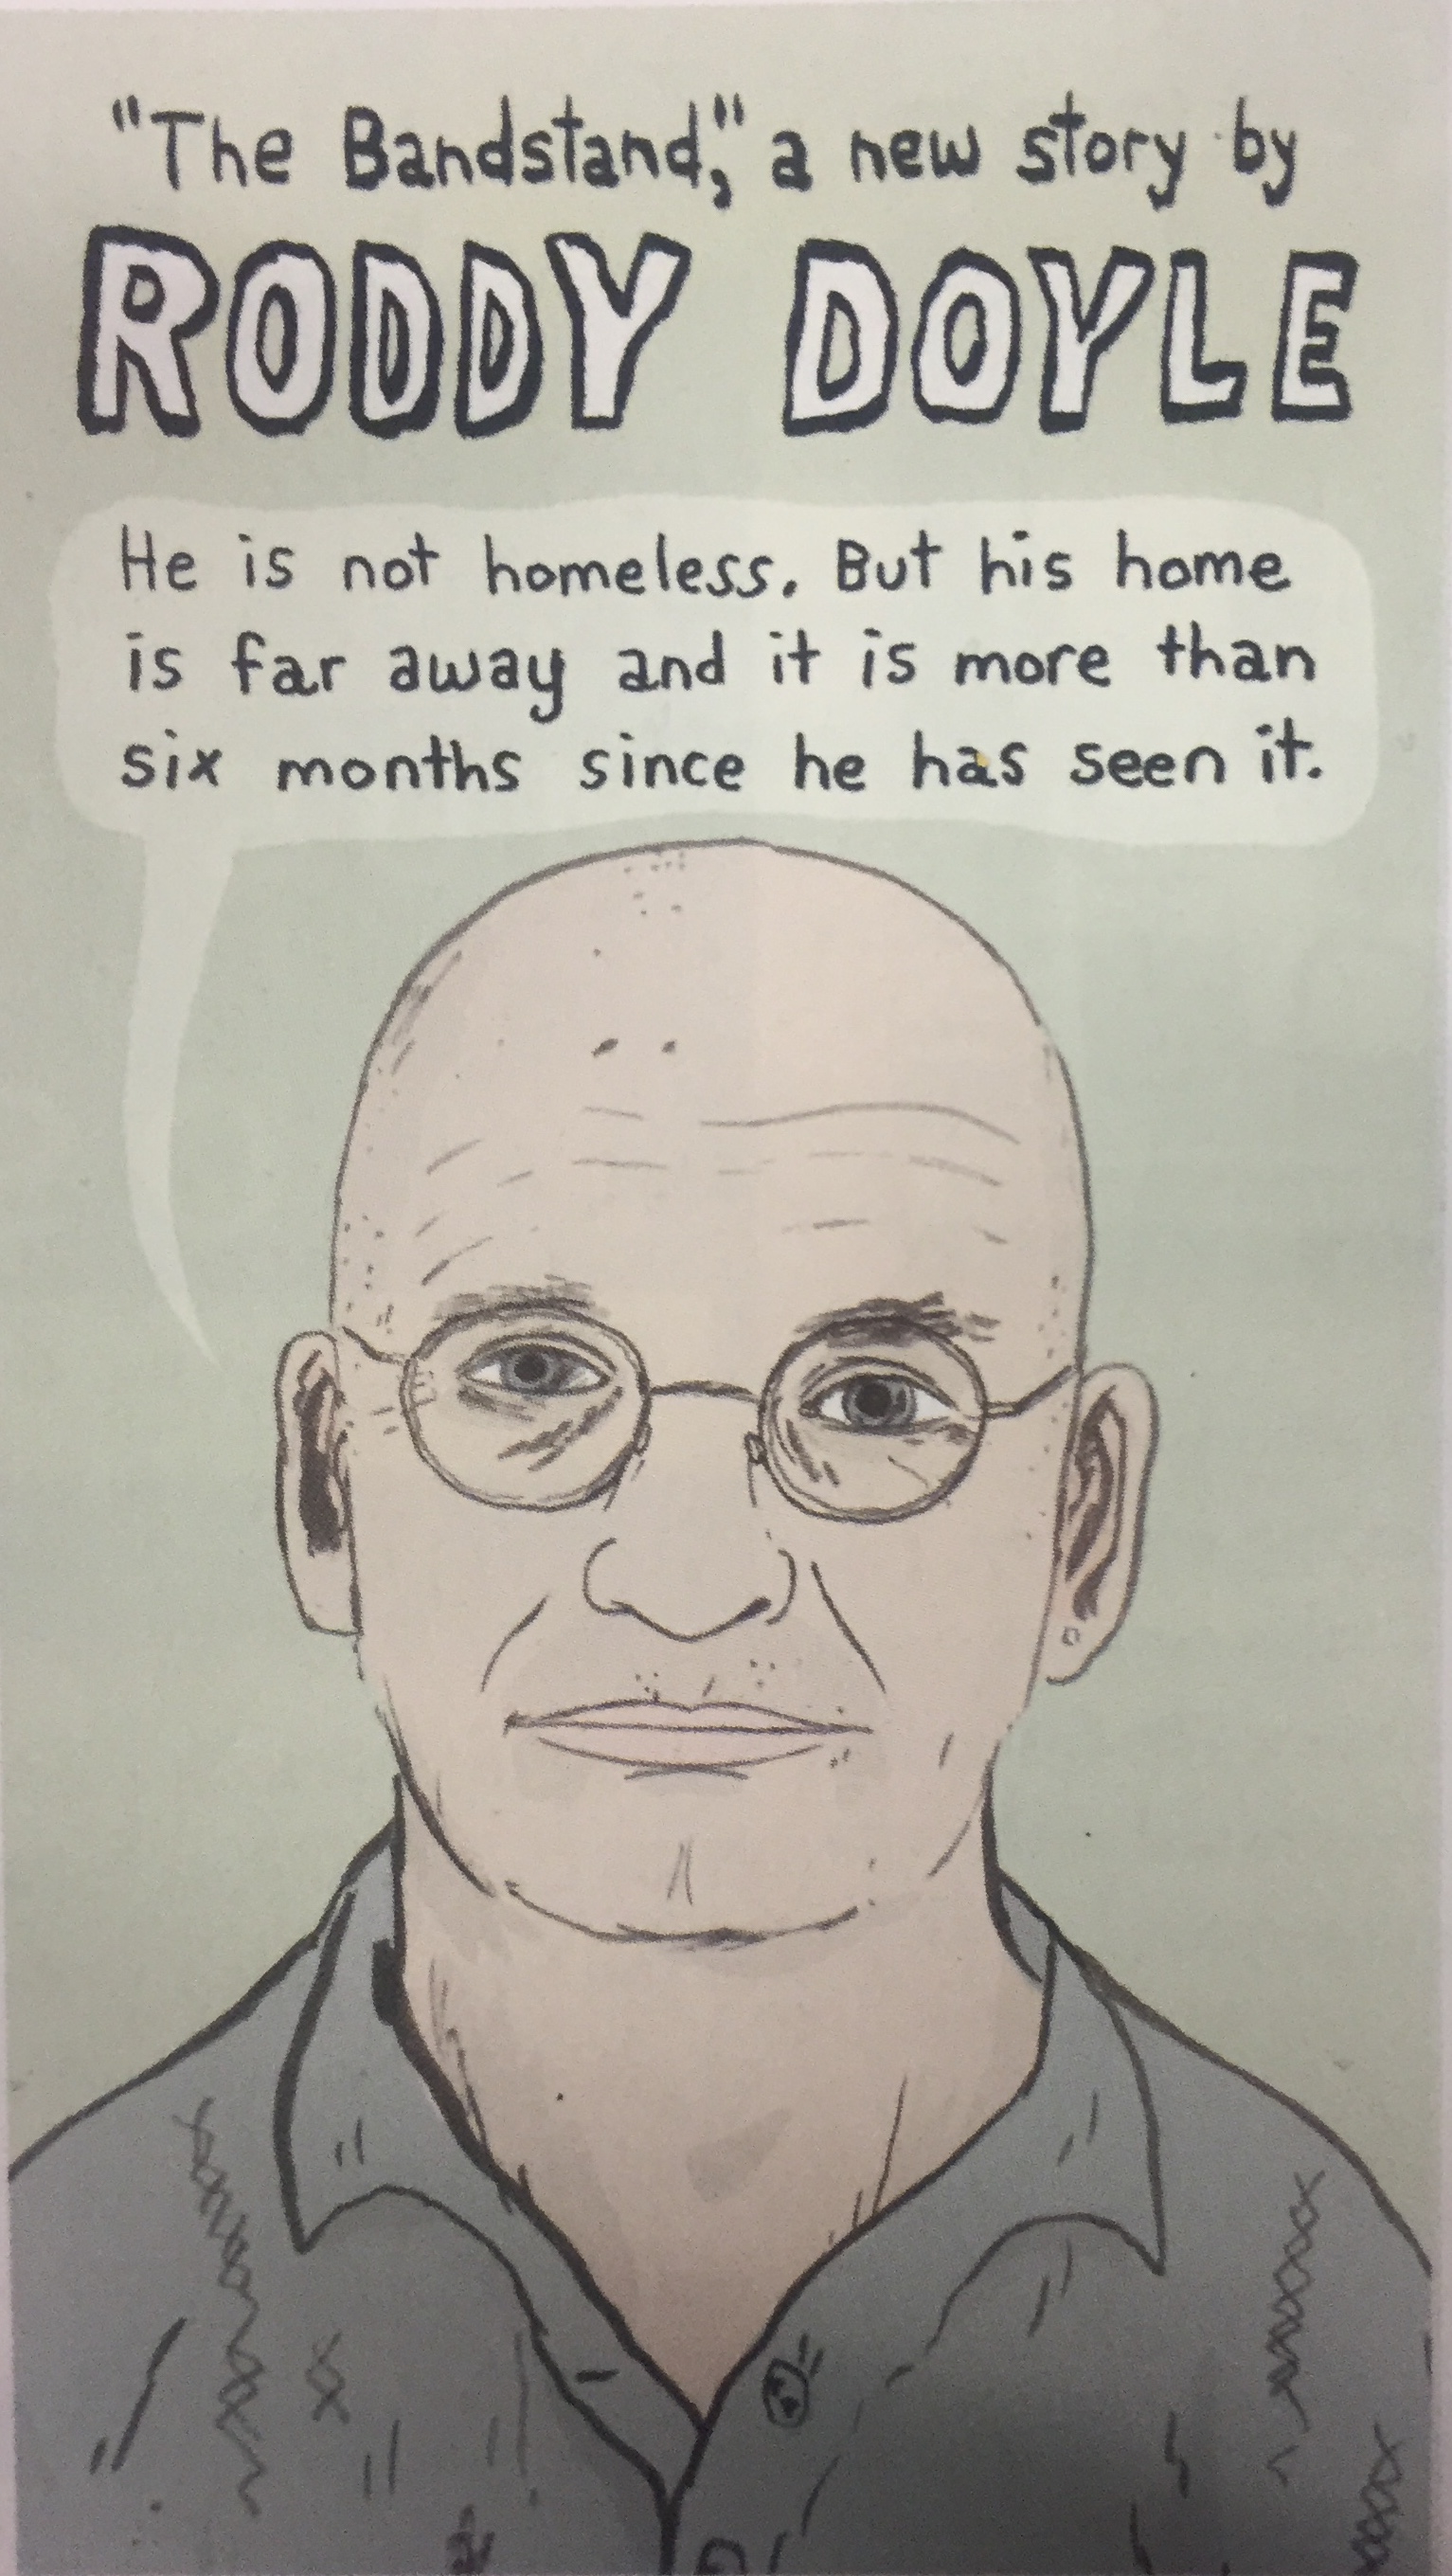 "The Bandstand," a new story by
RODDY DOYLE
He is not homeless. But his home
is far away and it is more than
six months since he has seen it.